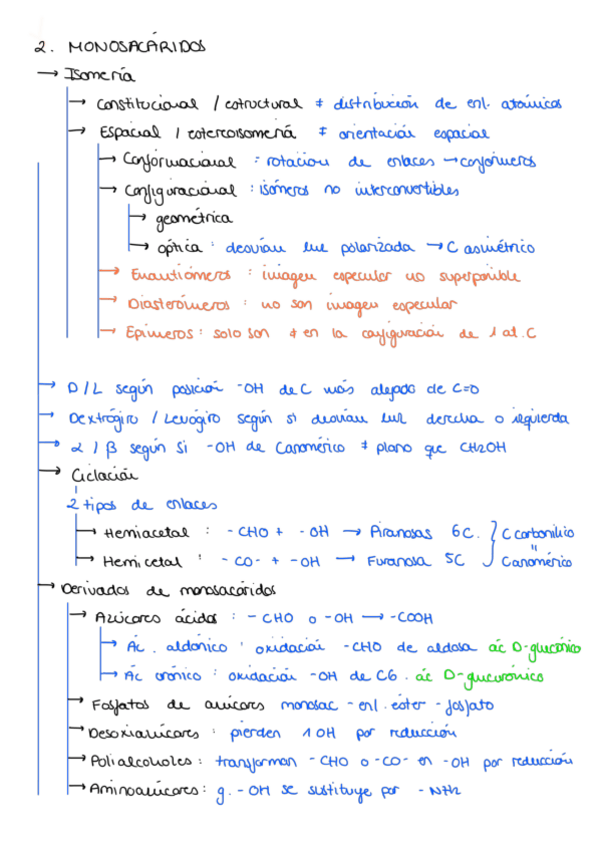 2. MONOSACÁRIDOS
→ Isomería
→ Constitucional / estructural ≠ distribución de enl. atómicos
→ Espacial / estereoisomería ≠ orientación espacial
→ Conformacional : rotación de enlaces → confórmeros
→ Configuracional : isómeros no interconvertibles
→ geométrica
→ óptica : desvían luz polarizada → C asimétrico
→ Enantiómeros : imagen especular no superponible
→ Diasterómeros : no son imagen especular
→ Epímeros : solo son ≠ en la configuración de 1 at. C
→ D / L según posición -OH de C más alejado de C=O
→ Dextrógiro / Levógiro según si desvían luz derecha o izquierda
→ α / β según si -OH de Canomérico ≠ plano que CH2OH
→ Ciclación
2 tipos de enlaces
→ Hemiacetal : -CHO + -OH → Piranosas 6C. } C carbonilio
→ Hemicetal : -CO- + -OH → Furanosa 5C } = Canomérico
→ Derivados de monosacáridos
→ Azúcares ácidos : -CHO o -OH → -COOH
→ Ác. aldónico : oxidación -CHO de aldosa ác D-glucónico
→ Ác urónico : oxidación -OH de C6. ác D-glucurónico
→ Fosfatos de azúcares monosac - enl. éster - fosfato
→ Desoxiazúcares : pierden 1 OH por reducción
→ Polialcoholes : transforman -CHO o -CO- en -OH por reducción
→ Aminoazúcares : g. -OH se sustituye por -NH2